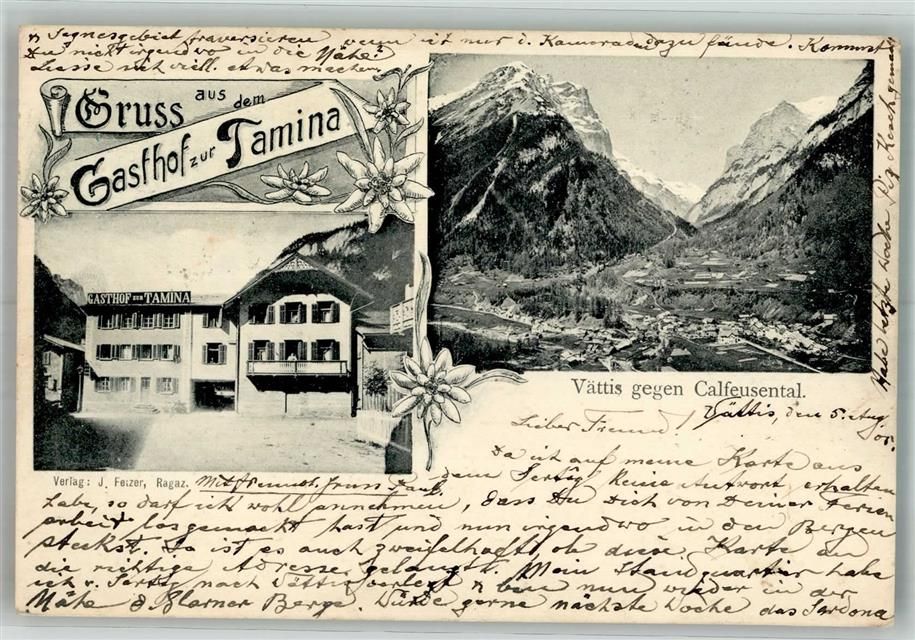 Gruss aus dem
Gasthof zur Tamina
GASTHOF ZUR TAMINA
Vättis gegen Calfeusental.
Verlag: J. Felzer, Ragaz.
Vättis, den 5. Aug. 05.
Lieber Freund!
Da ich auf meine Karte aus
dem Sertig keine Antwort erhalten
habe, so darf ich wohl annehmen, dass Du Dich von Deiner Ferien
arbeit losgemacht hast und nun irgendwo in den Bergen
steckst. So ist es auch zweifelhaft, ob diese Karte an
die richtige Adresse gelangt. Mein Standquartier habe
ich v. Sertig nach Vättis verlegt & bin nun wieder in der
Nähe d. Glarner Berge. Würde gerne nächste Woche das Sardona
& Segnesgebiet traversieren wenn ich nur 1. Kameraden dazu fände. Kommst
Du nicht irgendwo in die Nähe?
Liesse sich viell. etwas machen.
Mit freundl. Gruss Paul.
Habe letzte Woche Piz Kesch gemacht